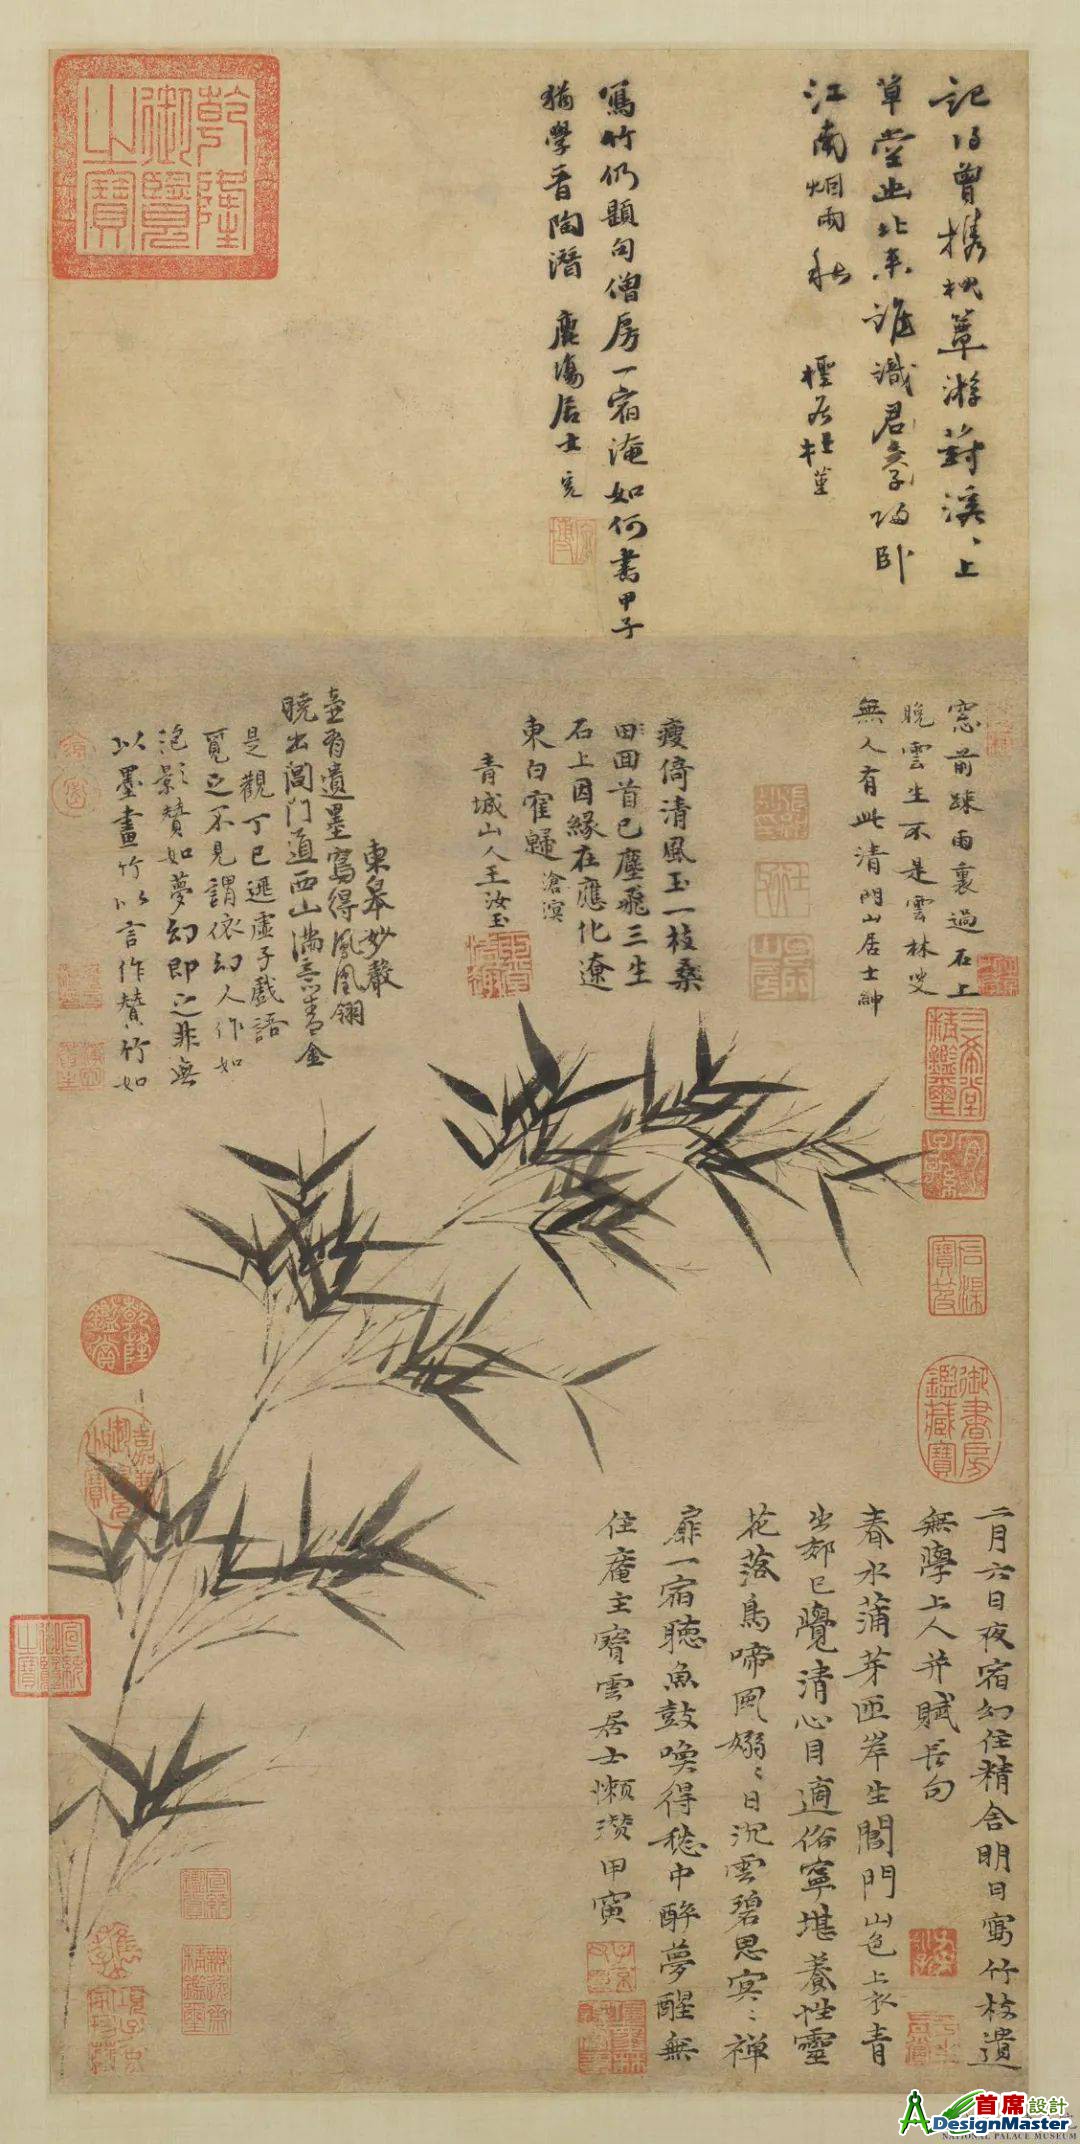 乾隆御覽之寶
記得曾攜枕簟游葑溪〻上
草堂幽北來誰識君夢歸臥
江南烟雨秋
寫竹仍題句僧房一宿淹如何書甲子
猶學晋陶潛
窓前踈雨裏過石上
晚雲生不是雲林叟
無人有此清門山居士紳
瘦倚清風玉一枝桑
田回首已塵飛三生
石上因緣在應化遼
東白寉歸滄溟
青城山人王汝玉
東皋妙聲
壺有遺墨寫得鳳凰翎
曉出閶門道西山滿意青金
是觀丁已逃虛子戲語
覓之不見謂依幻人作如
泡影贊如夢幻即之非無
以墨畫竹以言作贊竹如
三希堂精鑑璽
宜子孫
石渠寶笈
御書房鑑藏寶
乾隆鑑賞
嘉慶御覽之寶
宣統御覽之寶
二月六日夜宿幻住精舍明日寫竹枝遺
無學上人并賦長句
春水蒲芽匝岸生閶門山色上衣青
出郊已覺清心目適俗寧堪養性靈
花落鳥啼風嫋〻日沉雲碧思冥〻禅
扉一宿聴魚鼓喚得愁中醉夢醒無
住庵主寶雲居士懶瓚甲寅
宣統鑑賞
無逸齋精鑑璽
首席設計
ADesignMaster
NATIONAL PALACE MUSEUM